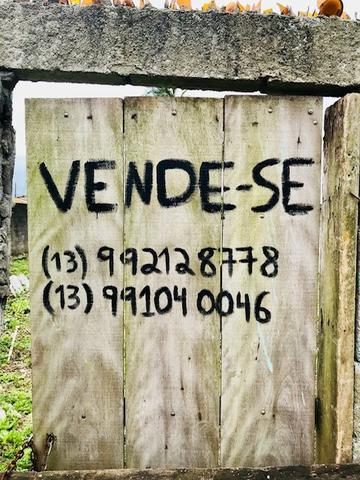 VENDE-SE
(13) 992128778
(13) 99104 0046